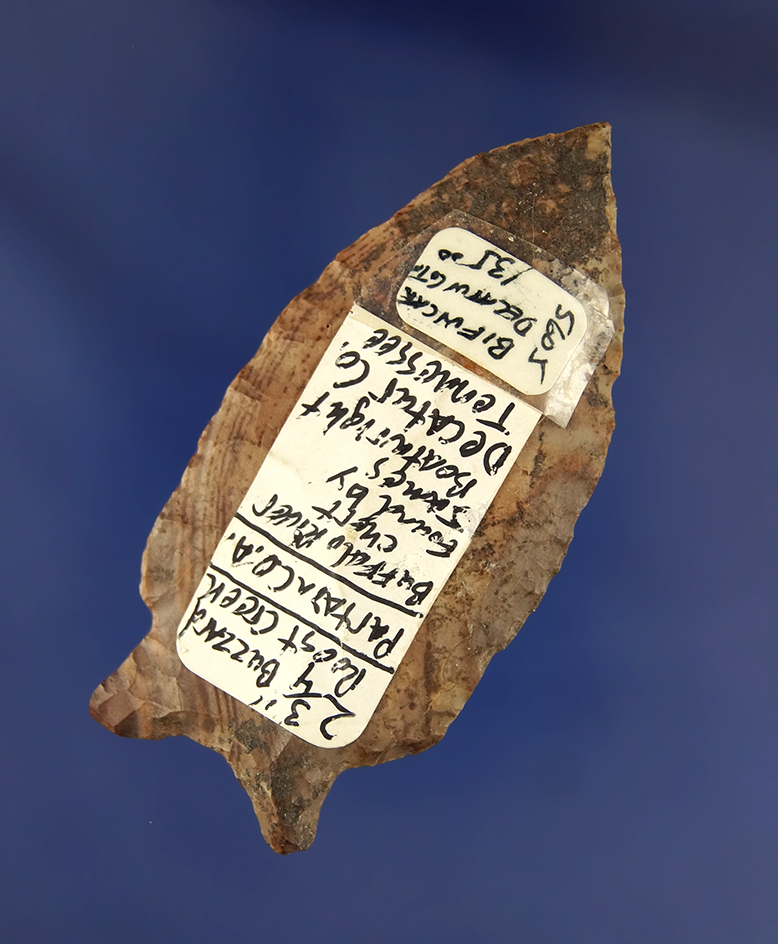 2 3/4" BUZZARD
ROOST CREEK
PARTAIN CO.A.
BUFFALO RIVER
CHERT
Found by
James
Boatwright
DECATUR CO.
Tennessee
BIFURCATE
135 00